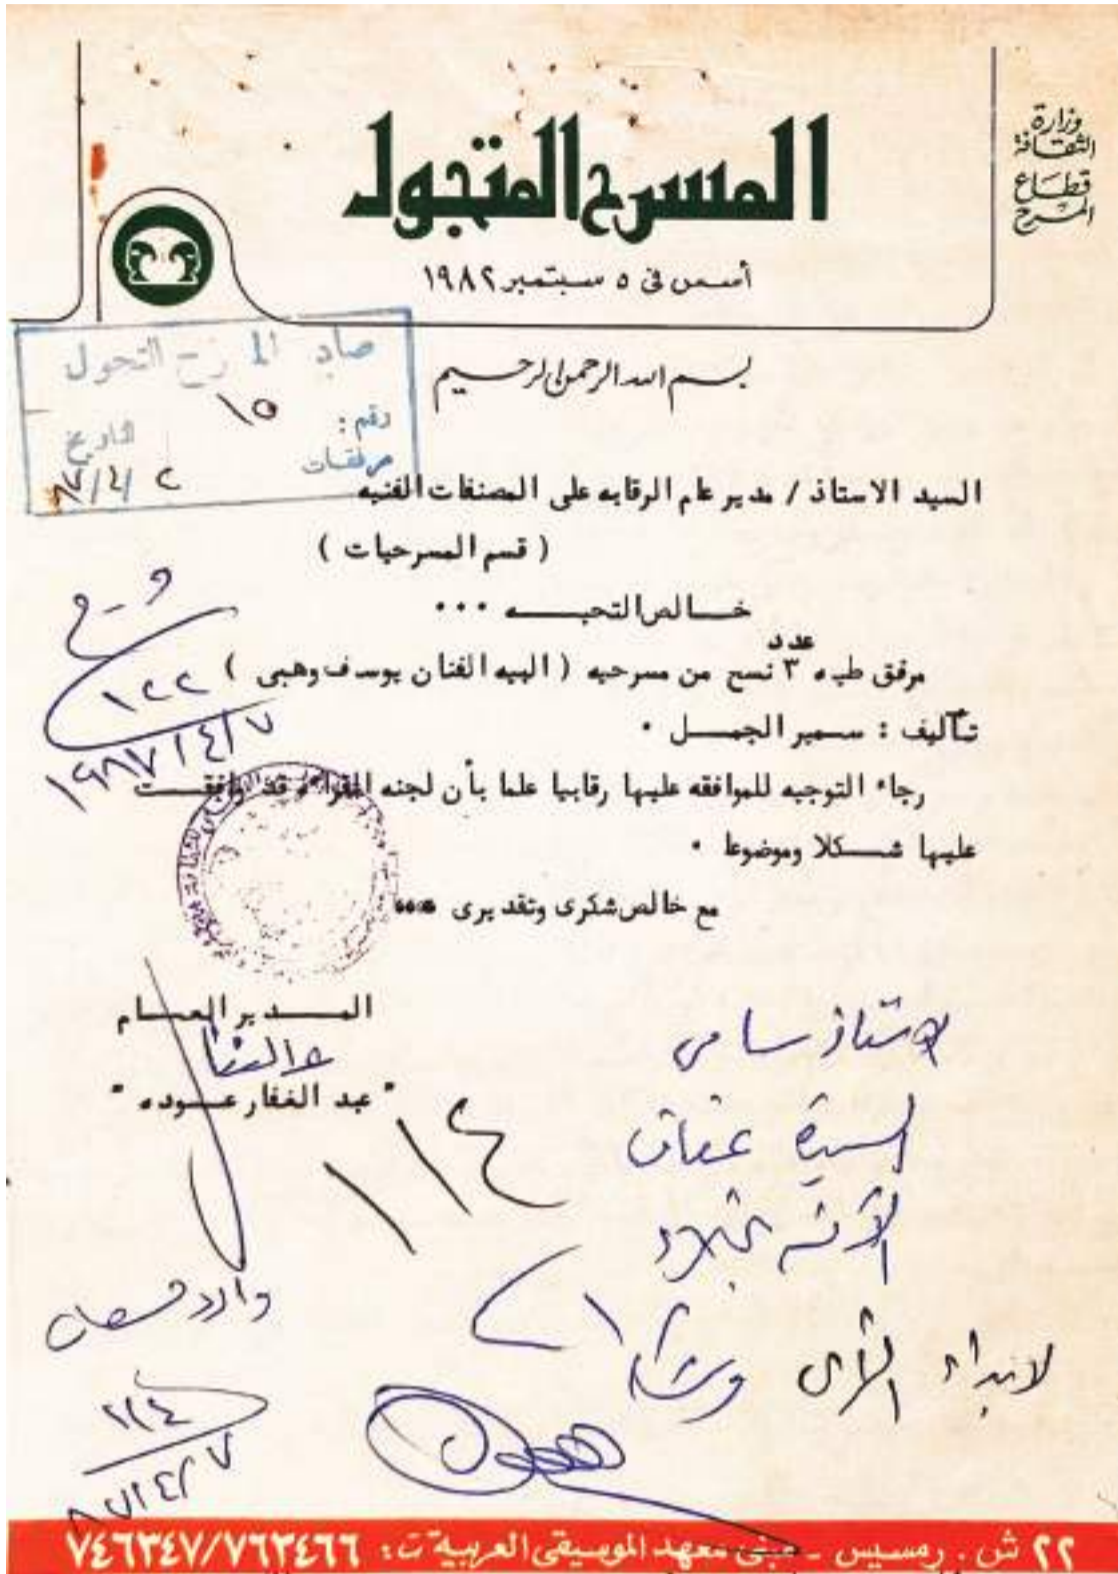 وزارة
الثقافة
قطاع
المسرح
المسرح المتجول
أسس فى ٥ سبتمبر ١٩٨٢
صادر المسرح المتجول
رقم : ١٥
التاريخ
مرفقات
بسم الله الرحمن الرحيم
السيد الاستاذ / مدير عام الرقابه على المصنفات الفنيه
( قسم المسرحيات )
خالص التحيه ...
مرفق طيه عدد ٣ نسخ من مسرحيه ( البيه الفنان يوسف وهبى )
تأليف : سمير الجمل .
رجاء التوجيه للموافقه عليها رقابيا علما بأن لجنه القراءه قد وافقت
عليها شكلا وموضوعا .
مع خالص شكرى وتقديرى
١٢٢
١٩٨٧/٤/٧
المدير العام
" عبد الغفار عوده "
الاستاذ سامى
السيدة عفاف
الآنسة نجلاء
لابداء الرأى وشكرا
١١٤
وارد
١١٤
٨٧/٤/٧
٢٢ ش . رمسيس - مبنى معهد الموسيقى العربية ت : ٧٤٦٣٤٧/٧٦٣٤٦٦